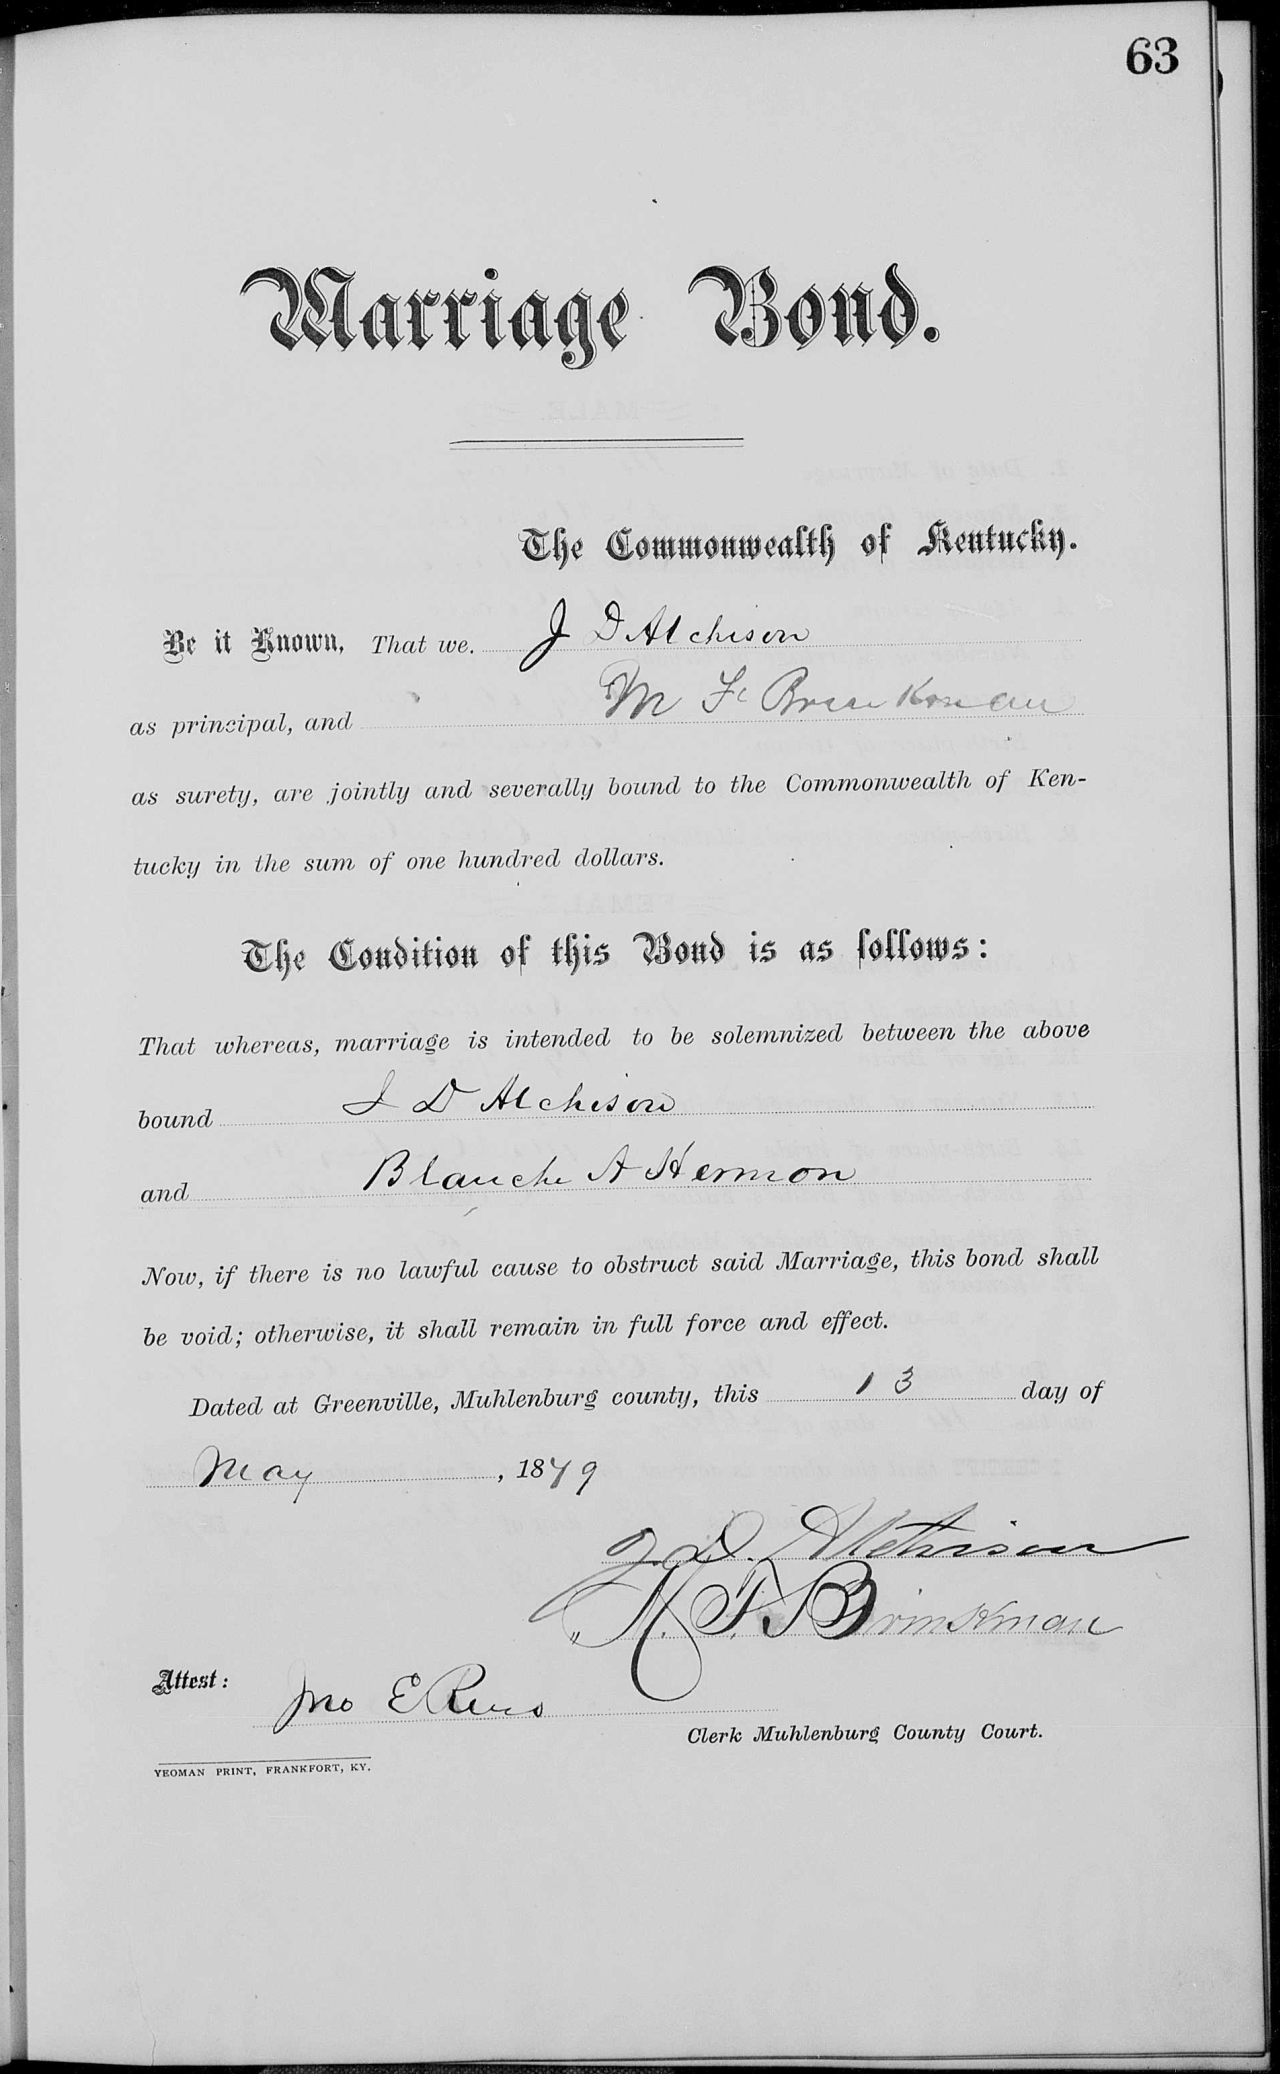 63
Marriage Bond.
The Commonwealth of Kentucky.
Be it Known, That we. J D Atchison
as principal, and M F Brinkman
as surety, are jointly and severally bound to the Commonwealth of Ken-
tucky in the sum of one hundred dollars.
The Condition of this Bond is as follows:
That whereas, marriage is intended to be solemnized between the above
bound J D Atchison
and Blanche A Hermon
Now, if there is no lawful cause to obstruct said Marriage, this bond shall
be void; otherwise, it shall remain in full force and effect.
Dated at Greenville, Muhlenburg county, this 13 day of
May, 1879
J. D. Atchison
M. F. Brinkman
Attest: Jno E Reno
Clerk Muhlenburg County Court.
YEOMAN PRINT, FRANKFORT, KY.